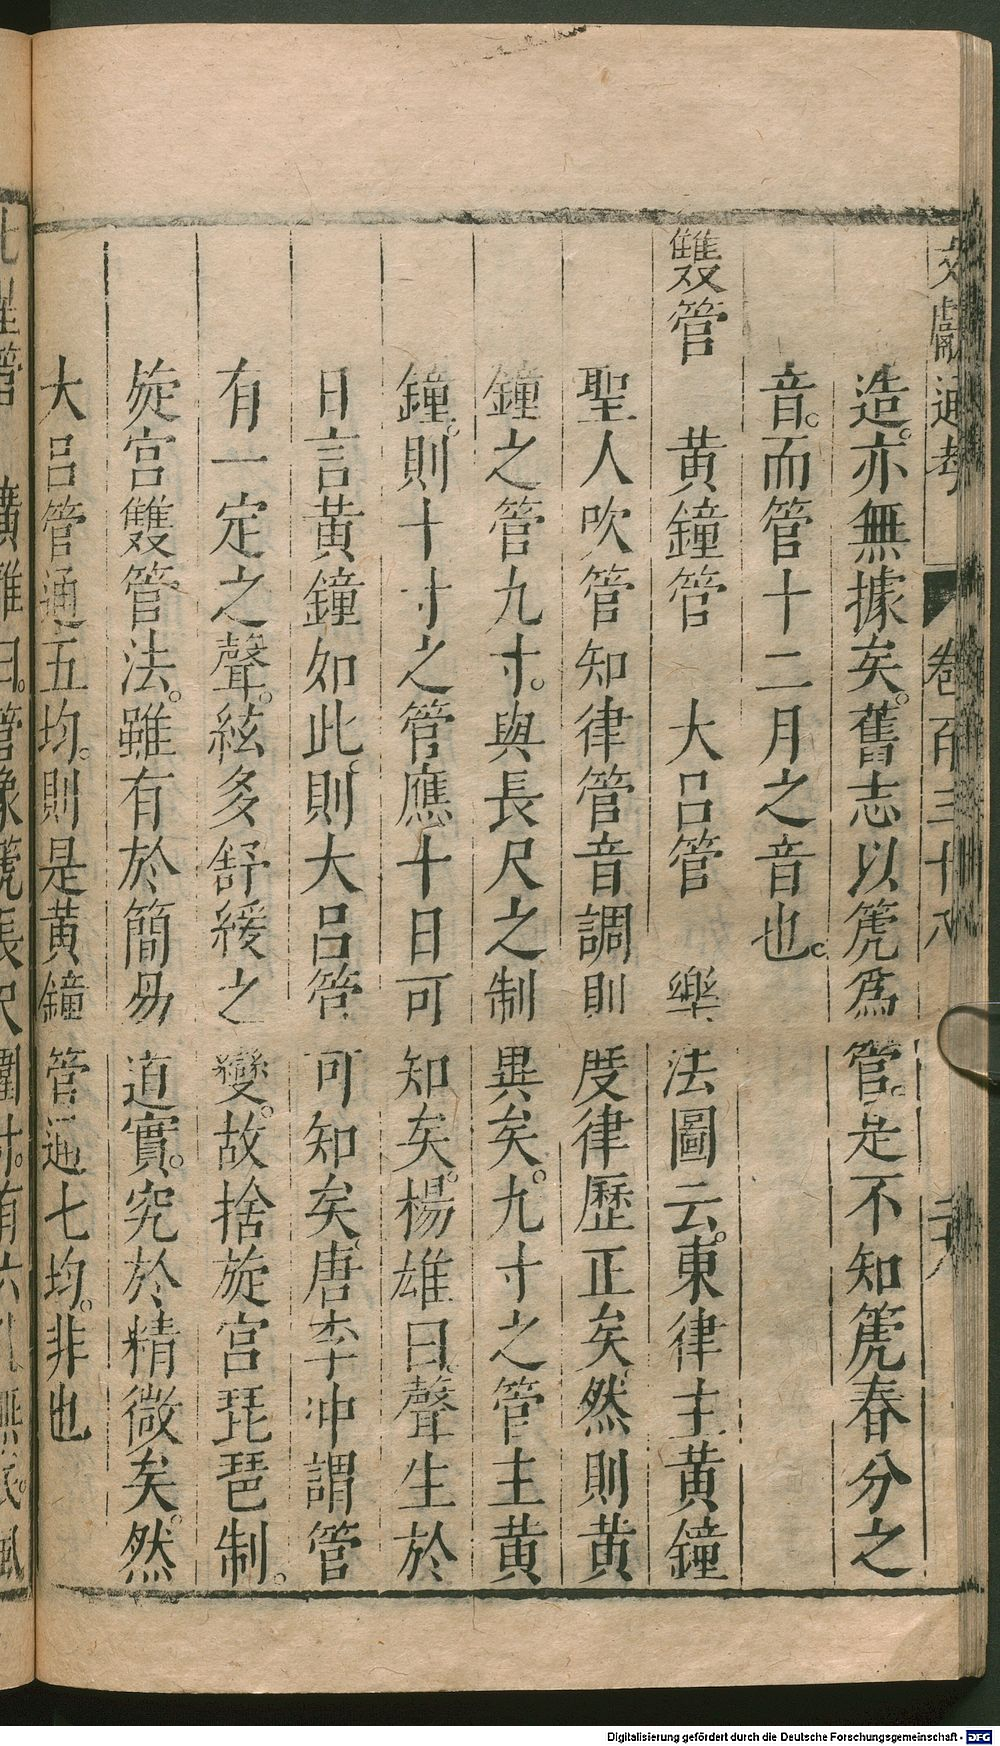 文獻通考 卷百三十八
造。亦無據矣。舊志以箎爲管。是不知箎春分之
音。而管十二月之音也。
雙管 黄鐘管 大呂管 樂法圖云。東律主黄鐘
聖人吹管知律管音調則度律歷正矣。然則黄
鐘之管九寸。與長尺之制異矣。九寸之管主黄
鐘。則十寸之管應十日可知矣。楊雄曰。聲生於
日言黃鐘如此。則大呂管可知矣。唐李冲謂管
有一定之聲。絃多舒緩之變。故捨旋宫琵琶制。
旋宫雙管法。雖有於簡易道實。究於精微矣。然
大呂管通五均。則是黄鐘管通七均。非也
管 曰。管象箎長尺圍寸。有六
Digitalisierung gefördert durch die Deutsche Forschungsgemeinschaft - DFG